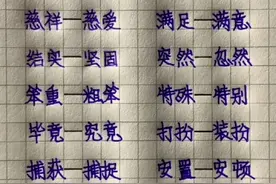 慈祥—慈爱 满足—满意
结实—坚固 突然—忽然
笨重—粗笨 特殊—特别
毕竟—究竟 打扮—装扮
捕获—捕捉 安置—安顿